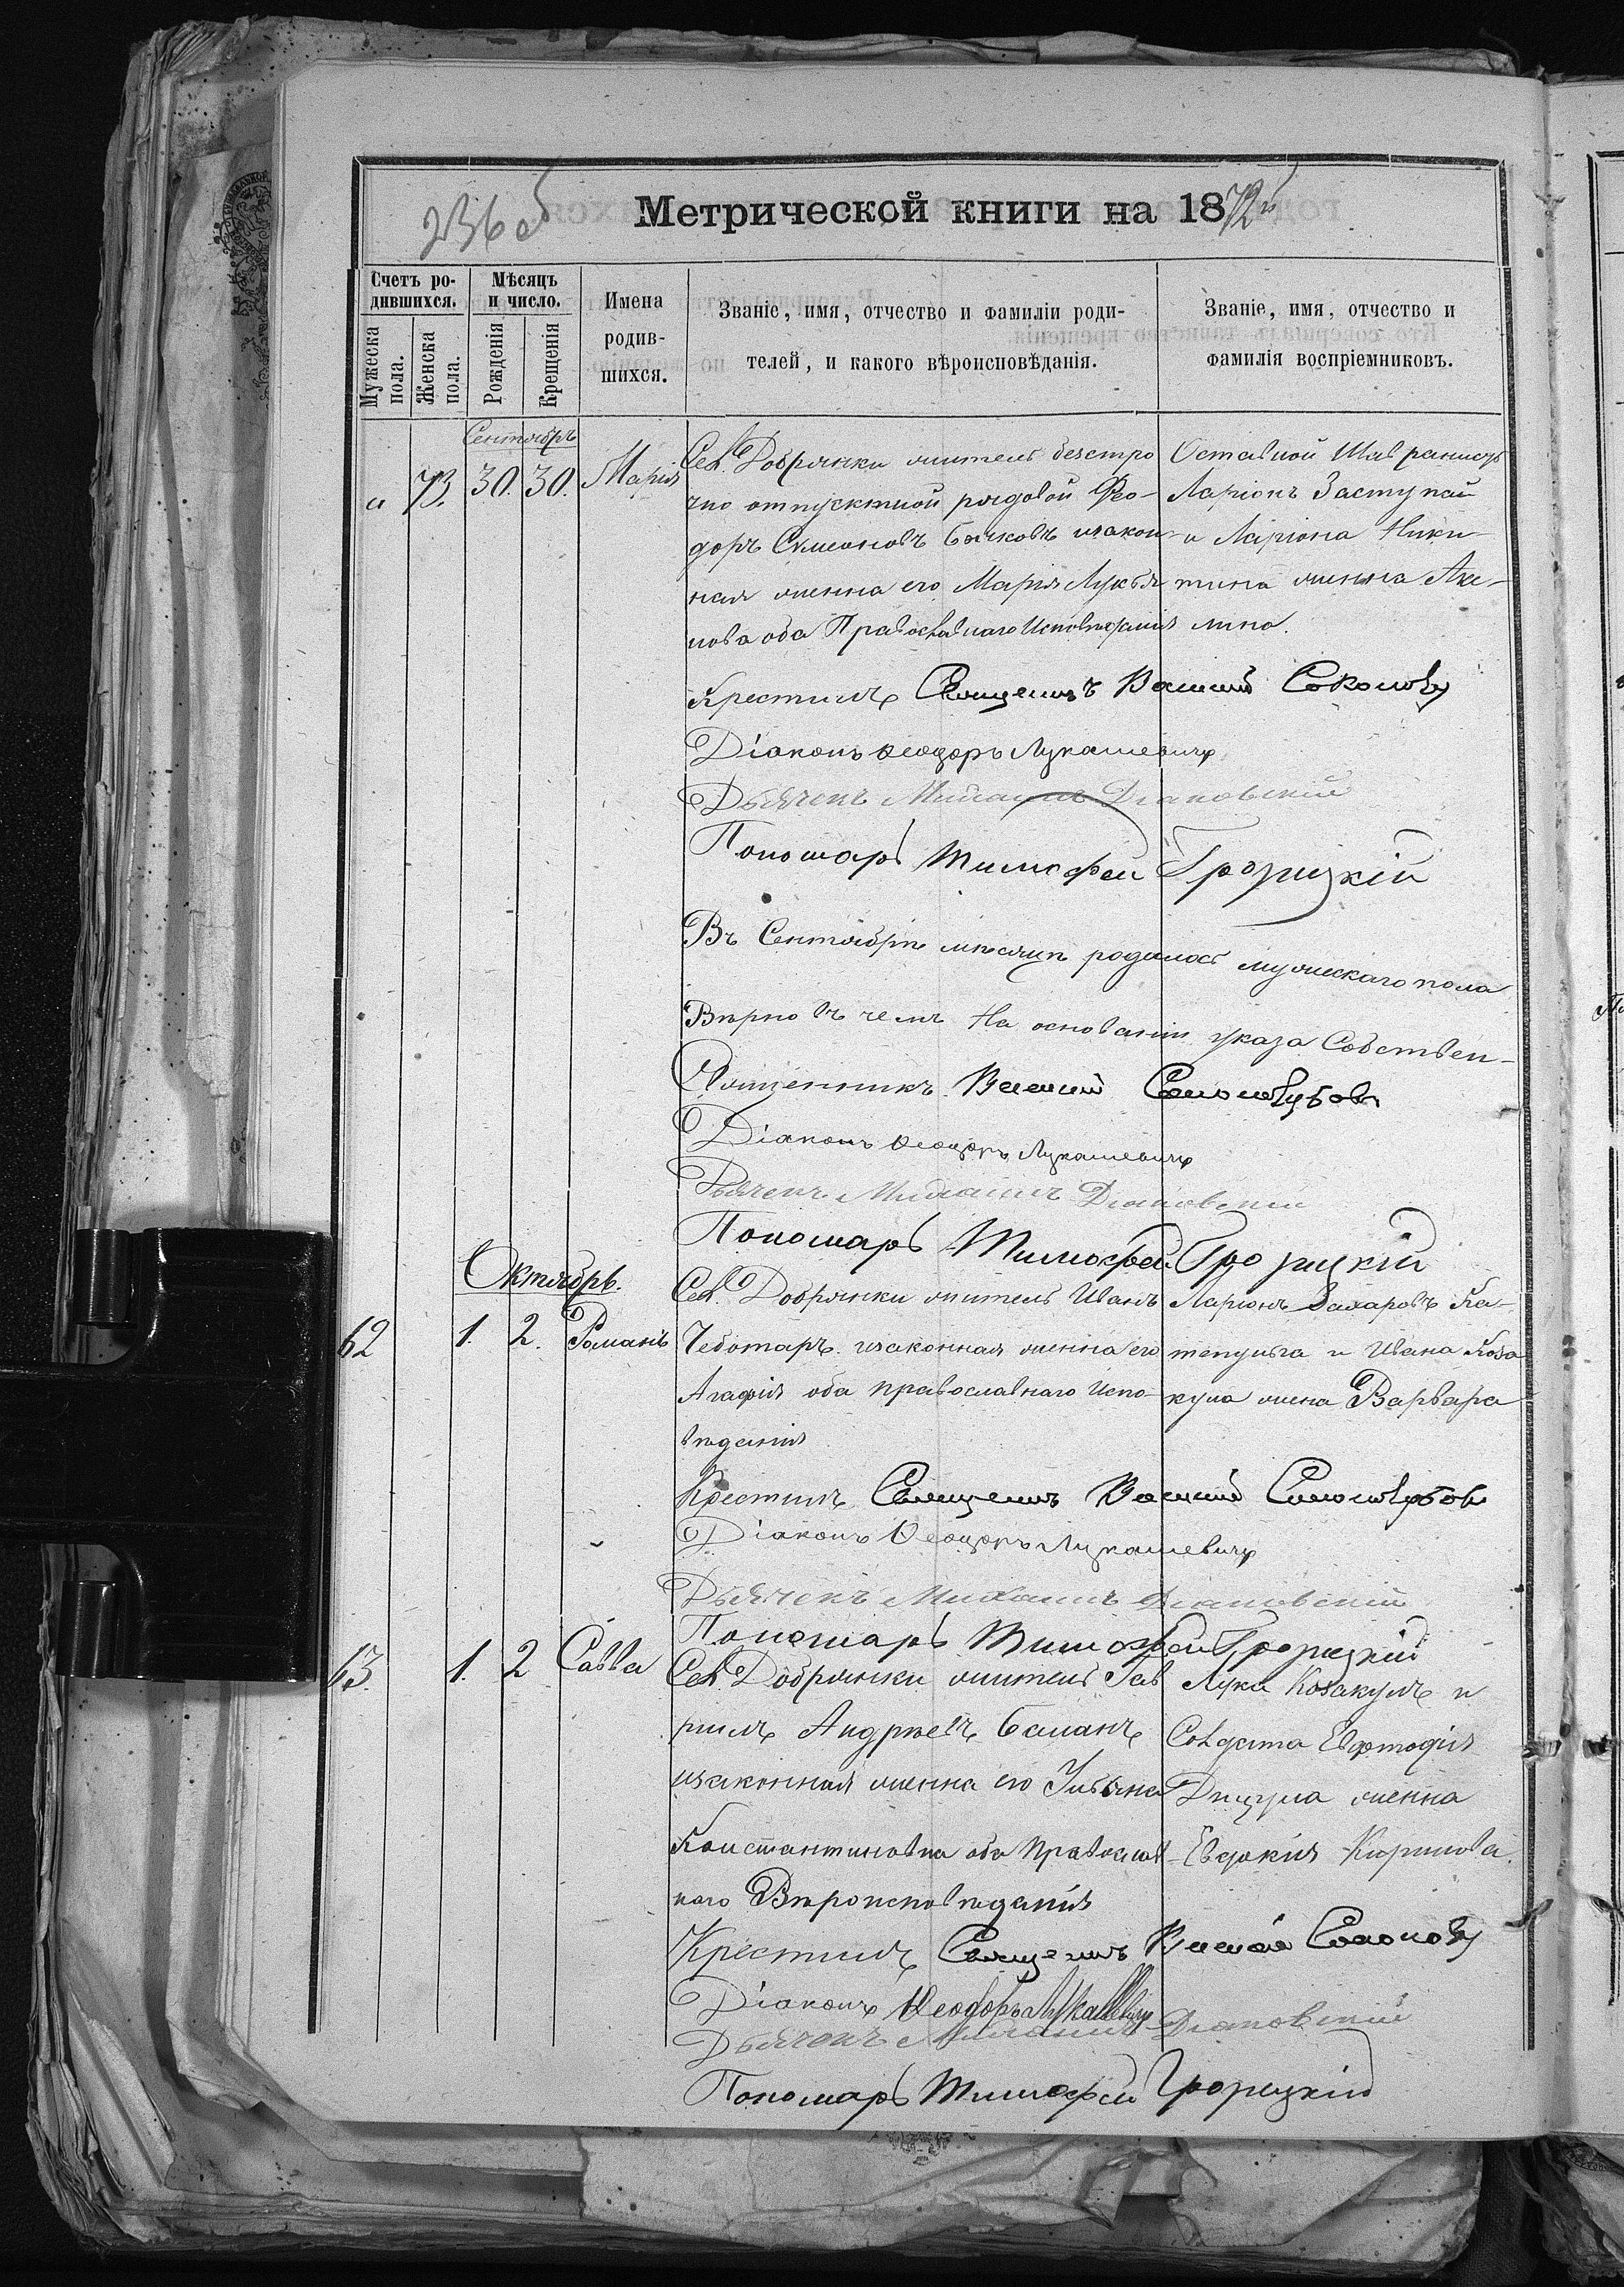 236 об
Метрической книги на 1872й
Счетъ ро-
дившихся.
Мѣсяцъ
и число.
Мужеска
пола.
Женска
пола.
Рожденія
Крещенія
Имена
родив-
шихся.
Званіе, имя, отчество и фамиліи роди-
телей, и какого вѣроисповѣданія.
Званіе, имя, отчество и
фамилія воспріемниковъ.
Сентябрь
73. 30. 30. Марія
Сел. Добрянки житель безсро
чно отпускной рядовой Фео-
доръ Симеоновъ Бычковъ изакон-
ная женна его Марія Лукья
нова оба Православнаго Исповѣданія
Ларіонъ Заступай
и Ларіона Ники-
тина женна Аке-
лина.
Крестилъ Священ. Василій
Діаконъ Феодоръ Лукашевичъ
Дьячекъ Михаилъ Діановскій
Пономарь Тимофей Грозицкій
Въ Сентябрѣ мѣсяцѣ родилось мужескаго пола
Вѣрно въ чемъ На основаніи указа Собствен-
Священникъ Василій
Діаконъ Феодоръ Лукашевичъ
Дьячекъ Михаилъ Діановскій
Пономарь Тимофей Грозицкій
Октябрь.
62 1. 2. Романъ
Сел. Добрянки житель Иванъ
Чеботарь изаконная женна его
Агафія оба православнаго Испо-
вѣданія
Ларіонъ Захаровъ Ка-
и Ивана Коза
кула жена Варвара
Крестилъ Священ. Василій
Діаконъ Феодоръ Лукашевичъ
Дьячекъ Михаилъ Діановскій
Пономарь Тимофей Грозицкій
63. 1. 2 Савва
Сел. Добрянки житель Гав
рилъ Андреевъ Баланъ
изаконная женна его Ульяна
Константиновна оба Православ
наго Вѣроисповѣданія
Лука Козакулъ и
Солдата
женна
Евдокія
Крестилъ Священ. Василій
Діаконъ Феодоръ Лукашевичъ
Дьячекъ Михаилъ Діановскій
Пономарь Тимофей Грозицкій